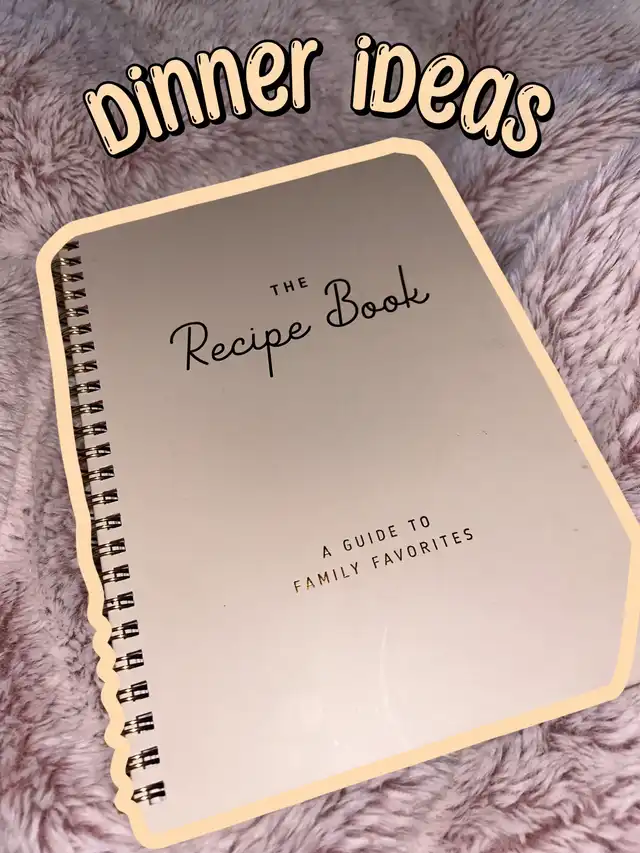 Dinner iDeas
THE
Recipe Book
A GUIDE TO
FAMILY FAVORITES